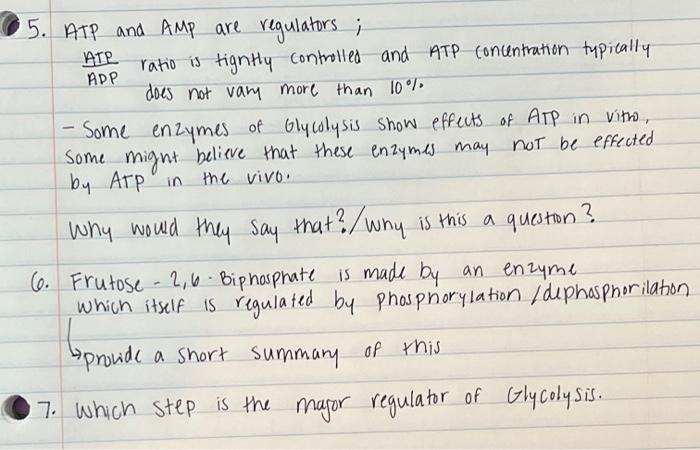 5. ATP and AMP are regulators ;
ATP
ADP
ratio is tigntly controlled and ATP concentration typically
does not vary more than 10%.
- Some enzymes of Glycolysis show effects of ATP in vitro,
some might believe that these enzymes may not be effected
by ATP in the vivo.
Why would they say that?/Why is this a question?
6. Frutose - 2,6 - Biphosphate is made by an enzyme
which itself is regulated by phosphorylation / dephosphorilation
↳ provide a short summary of this
7. Which step is the major regulator of Glycolysis.